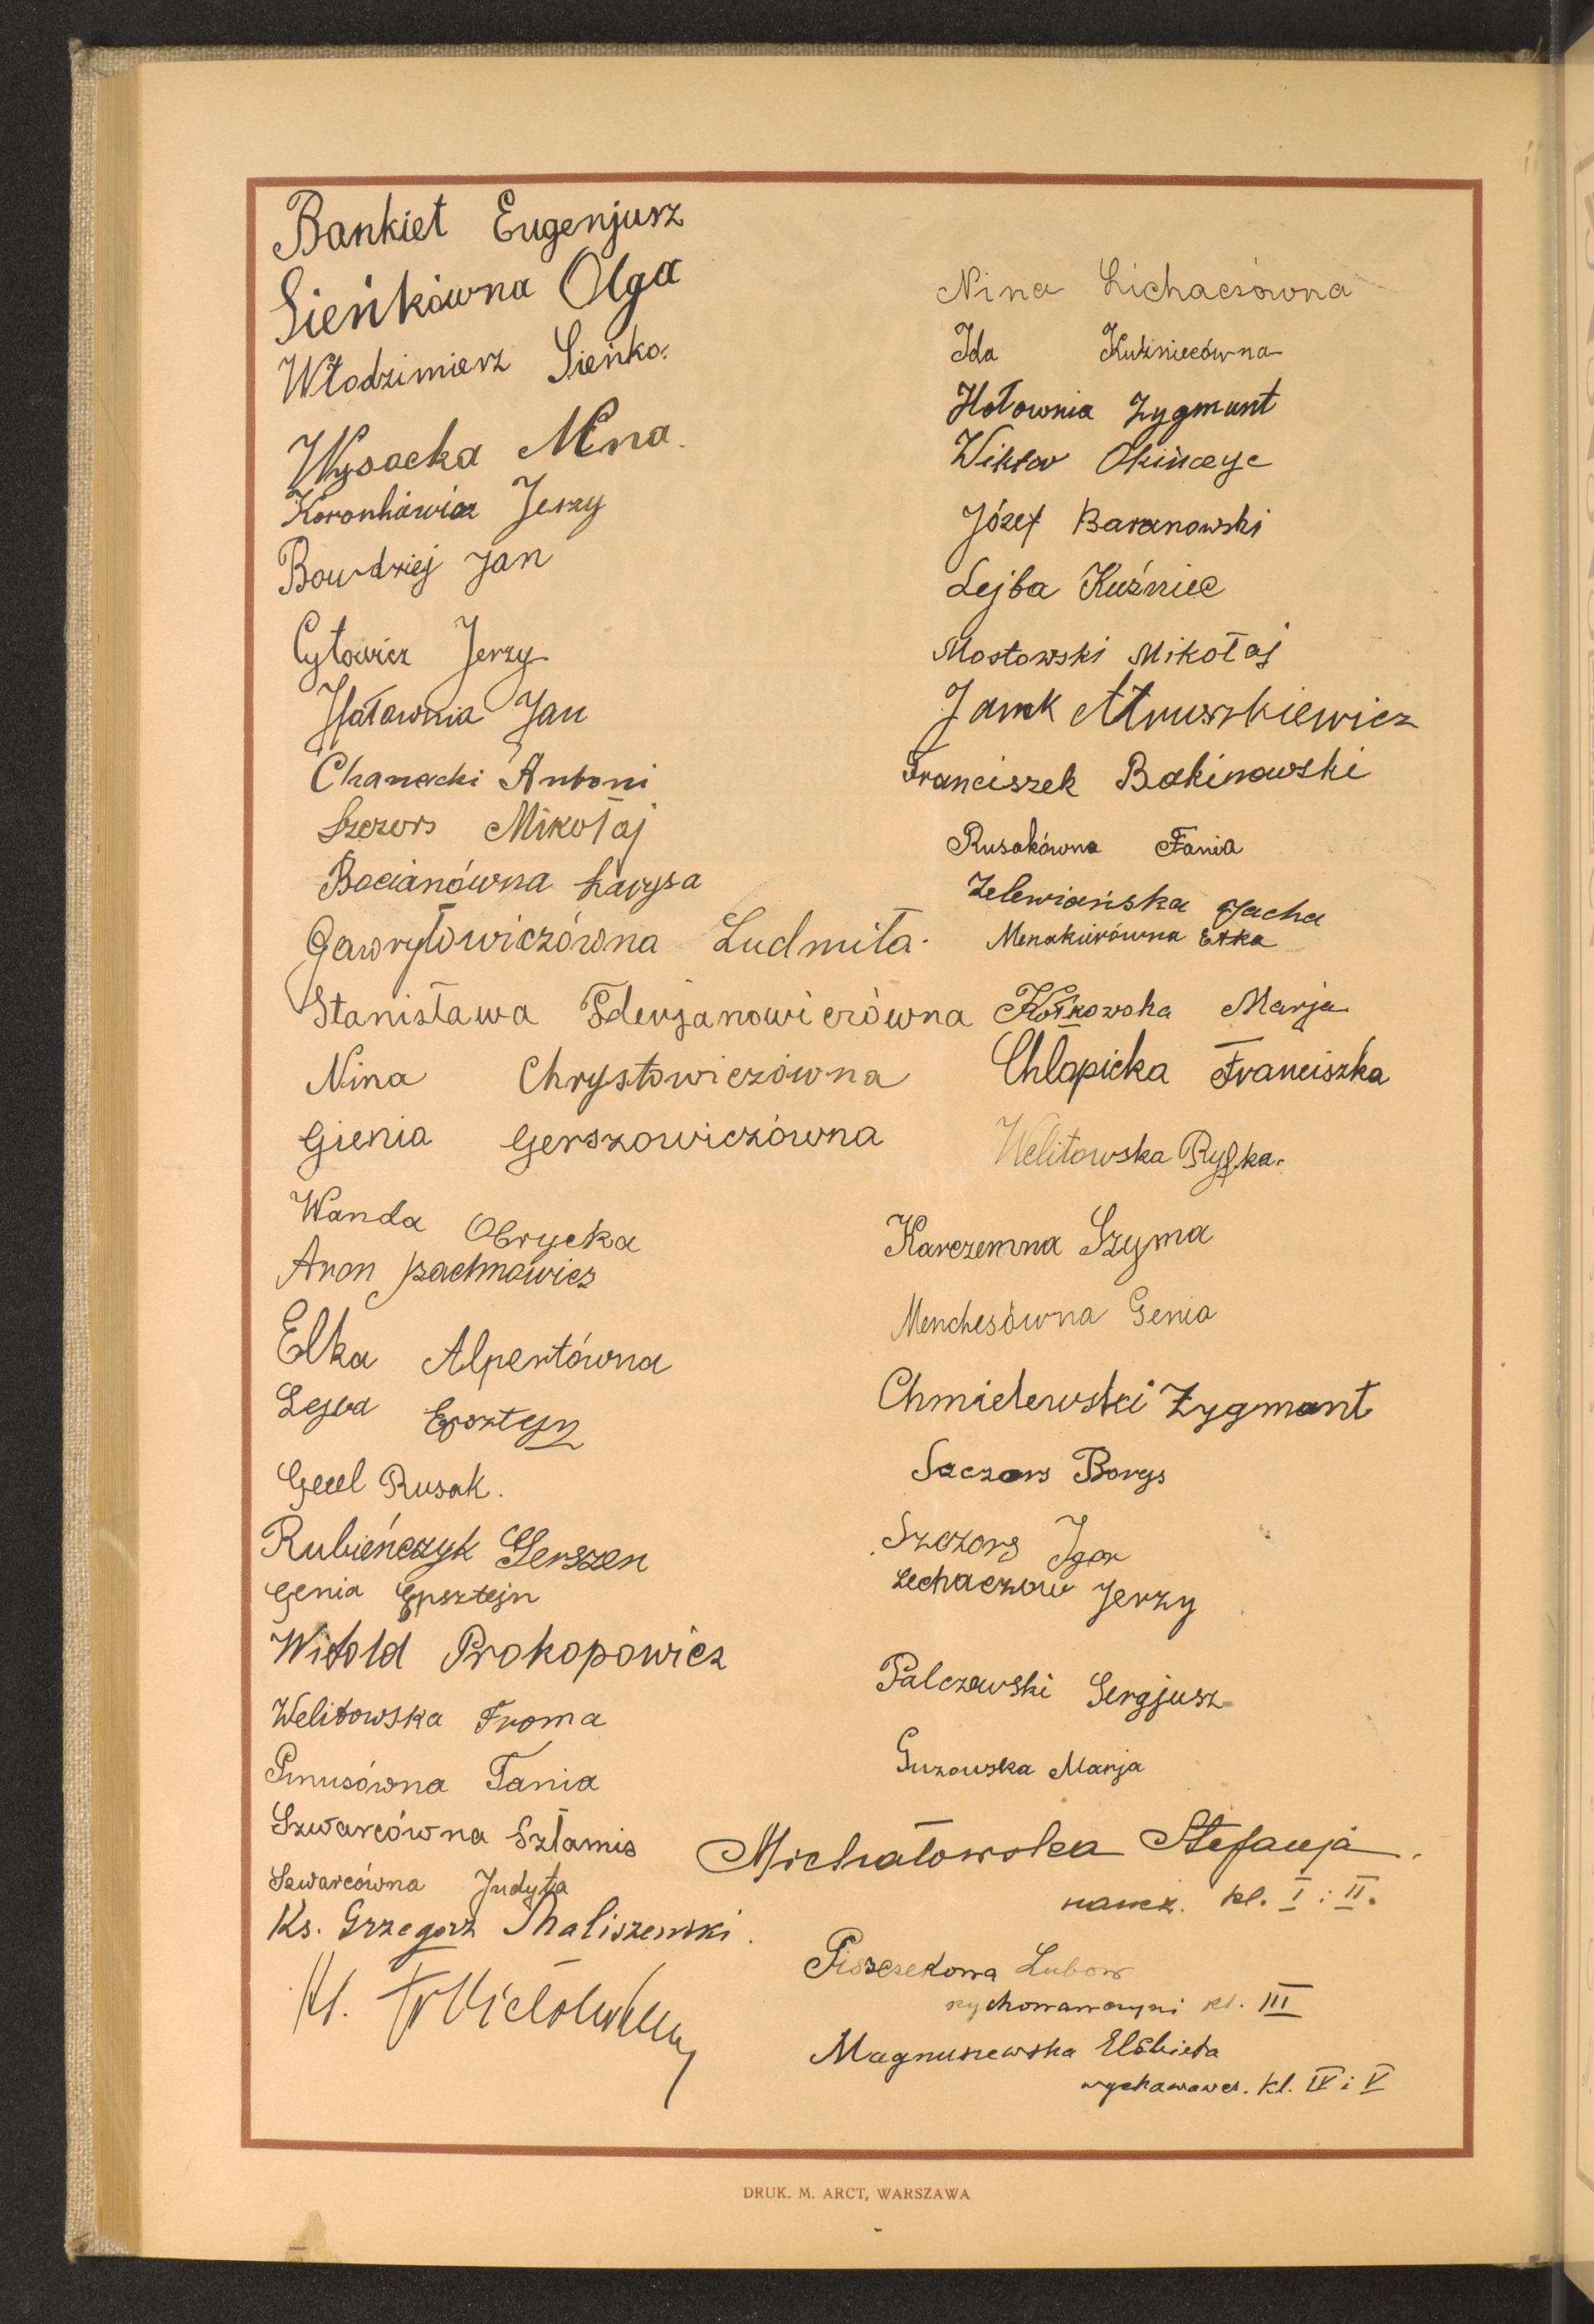 Bankiet Eugenjusz
Sieńkówna Olga
Włodzimierz Sieńko.
Wysocka Nina.
Koronkiewicz Jerzy
Bourdziej Jan
Cytowicz Jerzy
Hołownia Jan
Chanacki Antoni
Szczors Mikołaj
Bocianówna Łarysa
Gawryłowiczówna Ludmiła.
Stanisława Fderjanowiczówna
Nina Chrystowiczówna
Gienia Gerszowiczówna
Wanda Obrycka
Aron Izachnowicz
Elka Alpertówna
Lejba Epsztejn
Gecel Rusak.
Rubieńczyk Gerszen
Genia Epsztejn
Witold Prokopowicz
Welitowska Froma
Pinusówna Tania
Szwarcówna Szłamis
Szwarcówna Judyta
Ks. Grzegorz Maliszewski.
Nina Lichaczówna
Ida Kuźniecówna
Hołownia Zygmunt
Wiktor Okińczyc
Józef Baranowski
Lejba Kuźniec
Mostowski Mikołaj
Janek Mruszkiewicz
Franciszek Bakinowski
Rusakówna Fania
Zelewiańska Jacha
Menakierówna Etka
Kołkowska Marja
Chlapicka Franciszka
Welitowska Ryfka.
Karczemna Szyma
Menchesówna Genia
Chmielewski Zygmunt
Szczors Borys
Szczors Igor
Lechaczow Jerzy
Palczewski Sergjusz
Guzowska Marja
Michałowska Stefanja.
naucz. kl. I i II.
Piszczekowa Lubow
wychowawczyni kl. III
Magnuszewska Elżbieta
wychowawcz. kl. IV i V
DRUK. M. ARCT, WARSZAWA